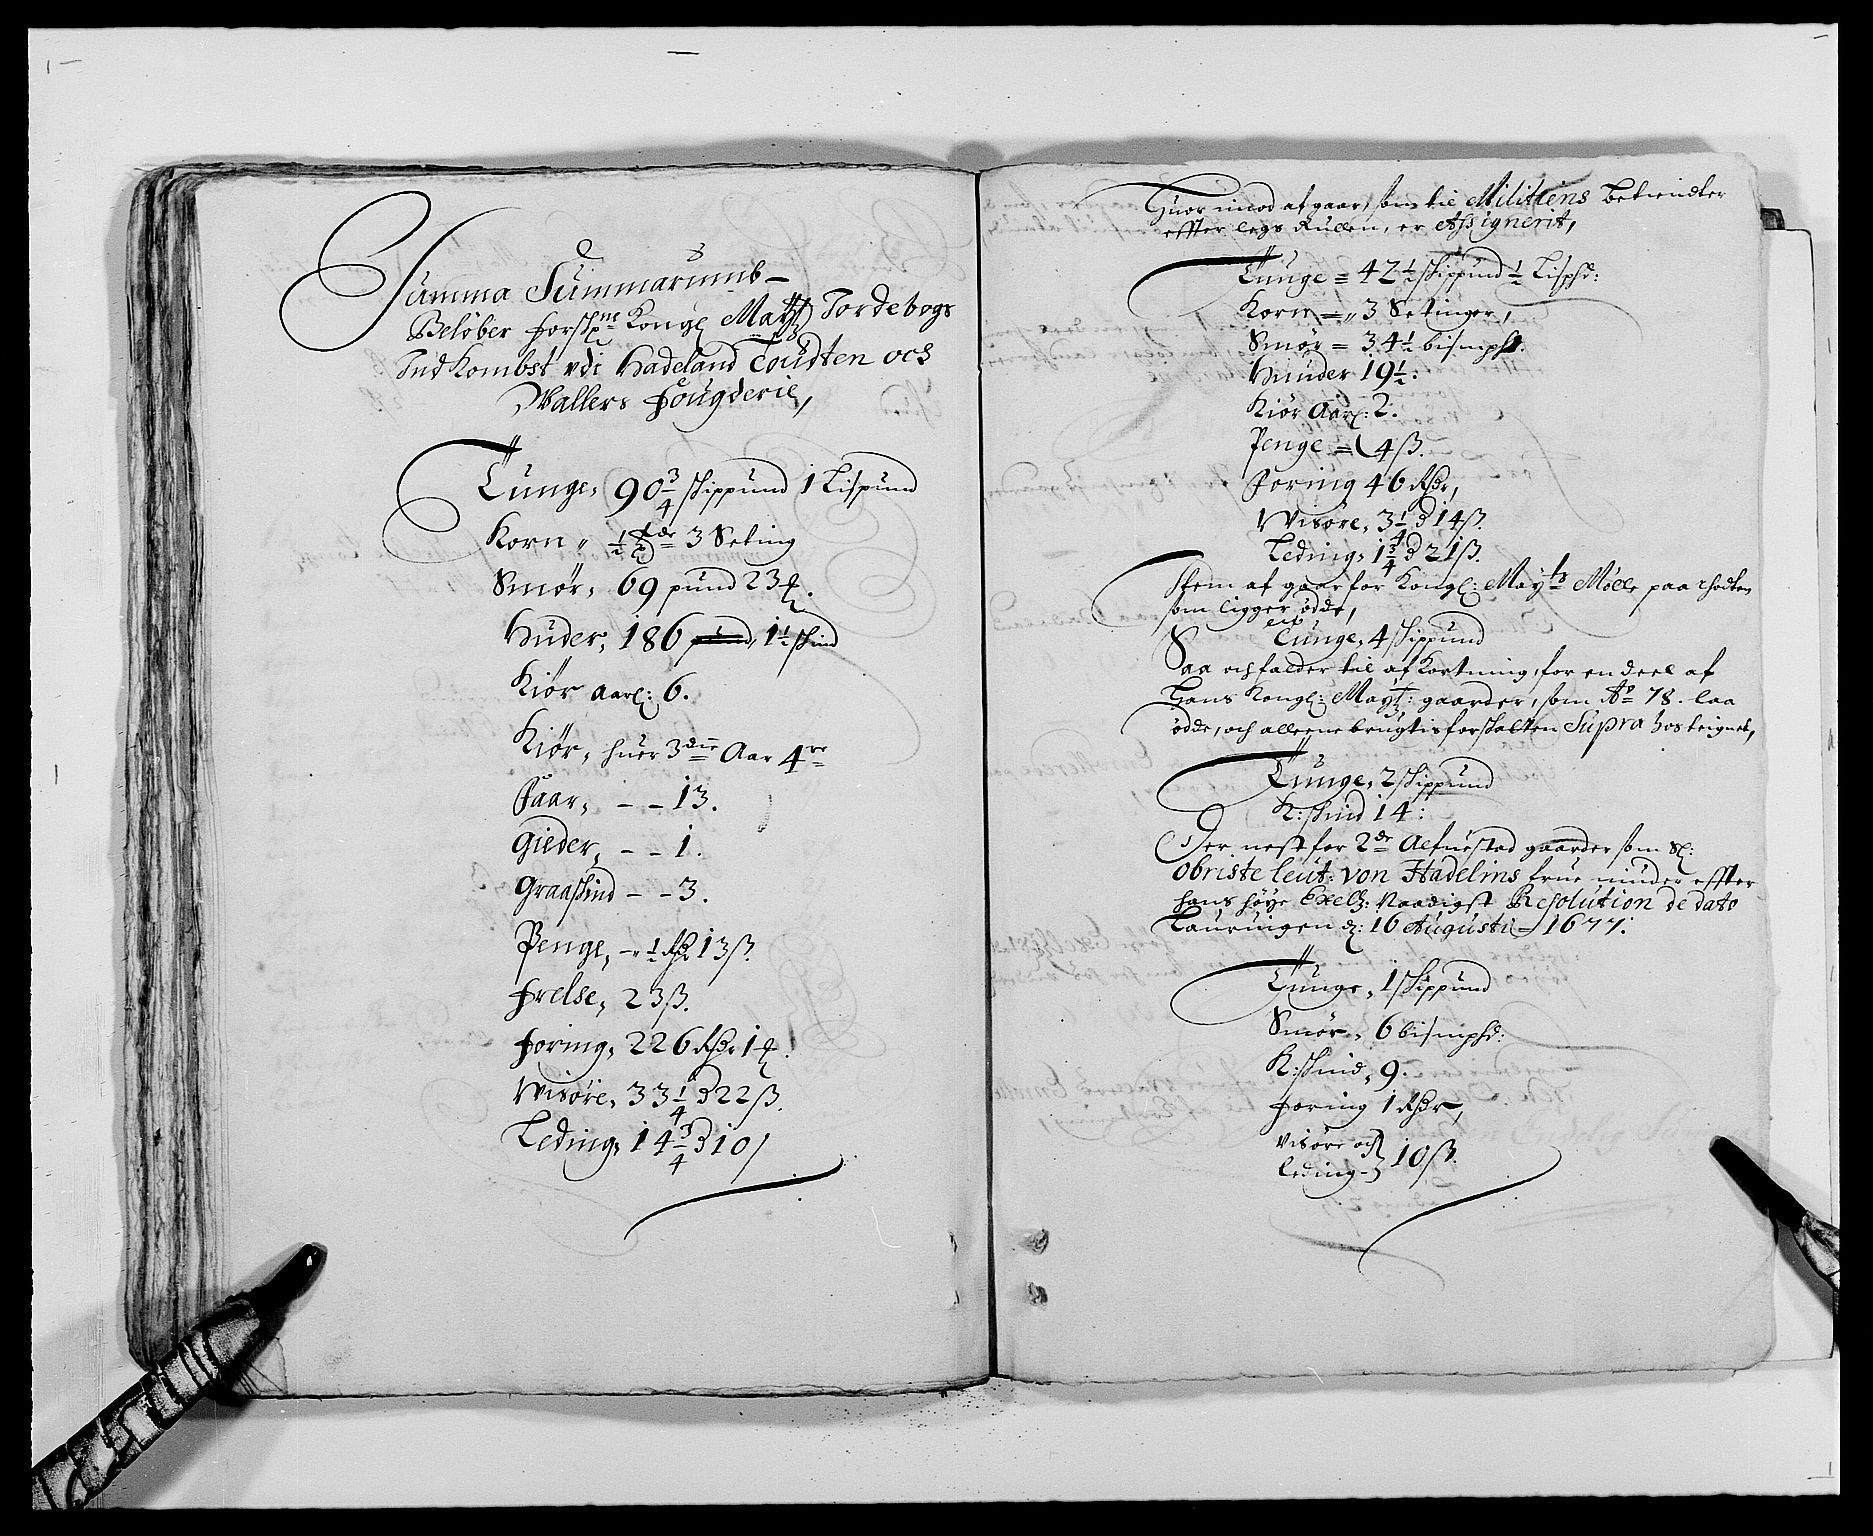 Summa Summarumb
Beløber forschne Kongl Maytz Jordebogs
Indkombst vdi Hadeland Toudten och
Wallers fougderie,
Tunge, 90 3/4 skippund 1 Lispund
Korn, 1/2 tde 3 Seting
Smør, 69 pund 23 ℔.
Huder, 186, 1 1/2 skind
Kiør aarl: 6.
Kiør, huer 3die Aar 4re
Faar, - - 13.
Gieder, - - 1.
Graaskind - - 3.
Penge, - 1/2 Rdr 13 ß.
frelse, 23 ß.
foring, 226 Rdr 1 ℔.
Wisøre, 33 1/4 d 22 ß.
Leding, 14 3/4 d 10 ß
Huor imod afgaar, som til Militiens betiendter
effter legs Rullen, er Assignerit,
Tunge = 42 1/2 skippund 1/2 Lisphd:
Korn = 3 Setinger,
Smør = 34 1/2 bismphd.
Huuder 19 1/2:
Kiør Aarl: 2.
Penge = 4 ß.
Foring 46 Rdr,
Wisøre, 3 1/4 d 14 ß.
Leding, 1 3/4 d 21 ß.
Item afgaar for Kongl: Mayts Mølle paa
som ligger øde,
Tunge, 4 skippund
Saa och falder til afkortning, for en deel af
Hans Kongl: Mayts: gaarder, som Ao 78. laa
ødde, och alleene brugtis for Supra hosteignet,
Tunge, 2 skippund
K: skind 14:
Der nest for 2de gaarder som Sl:
Obriste leut: von Hadelins frue niuder effter
hans høye Excell: Naadigst Resolution de dato
Lauringen d: 16 Augusti 1677.
Tunge, 1 skippund
Smør, 6 bismphd:
K: skind, 9.
foring 1 Rdr,
Visøre och
leding 10 ß.